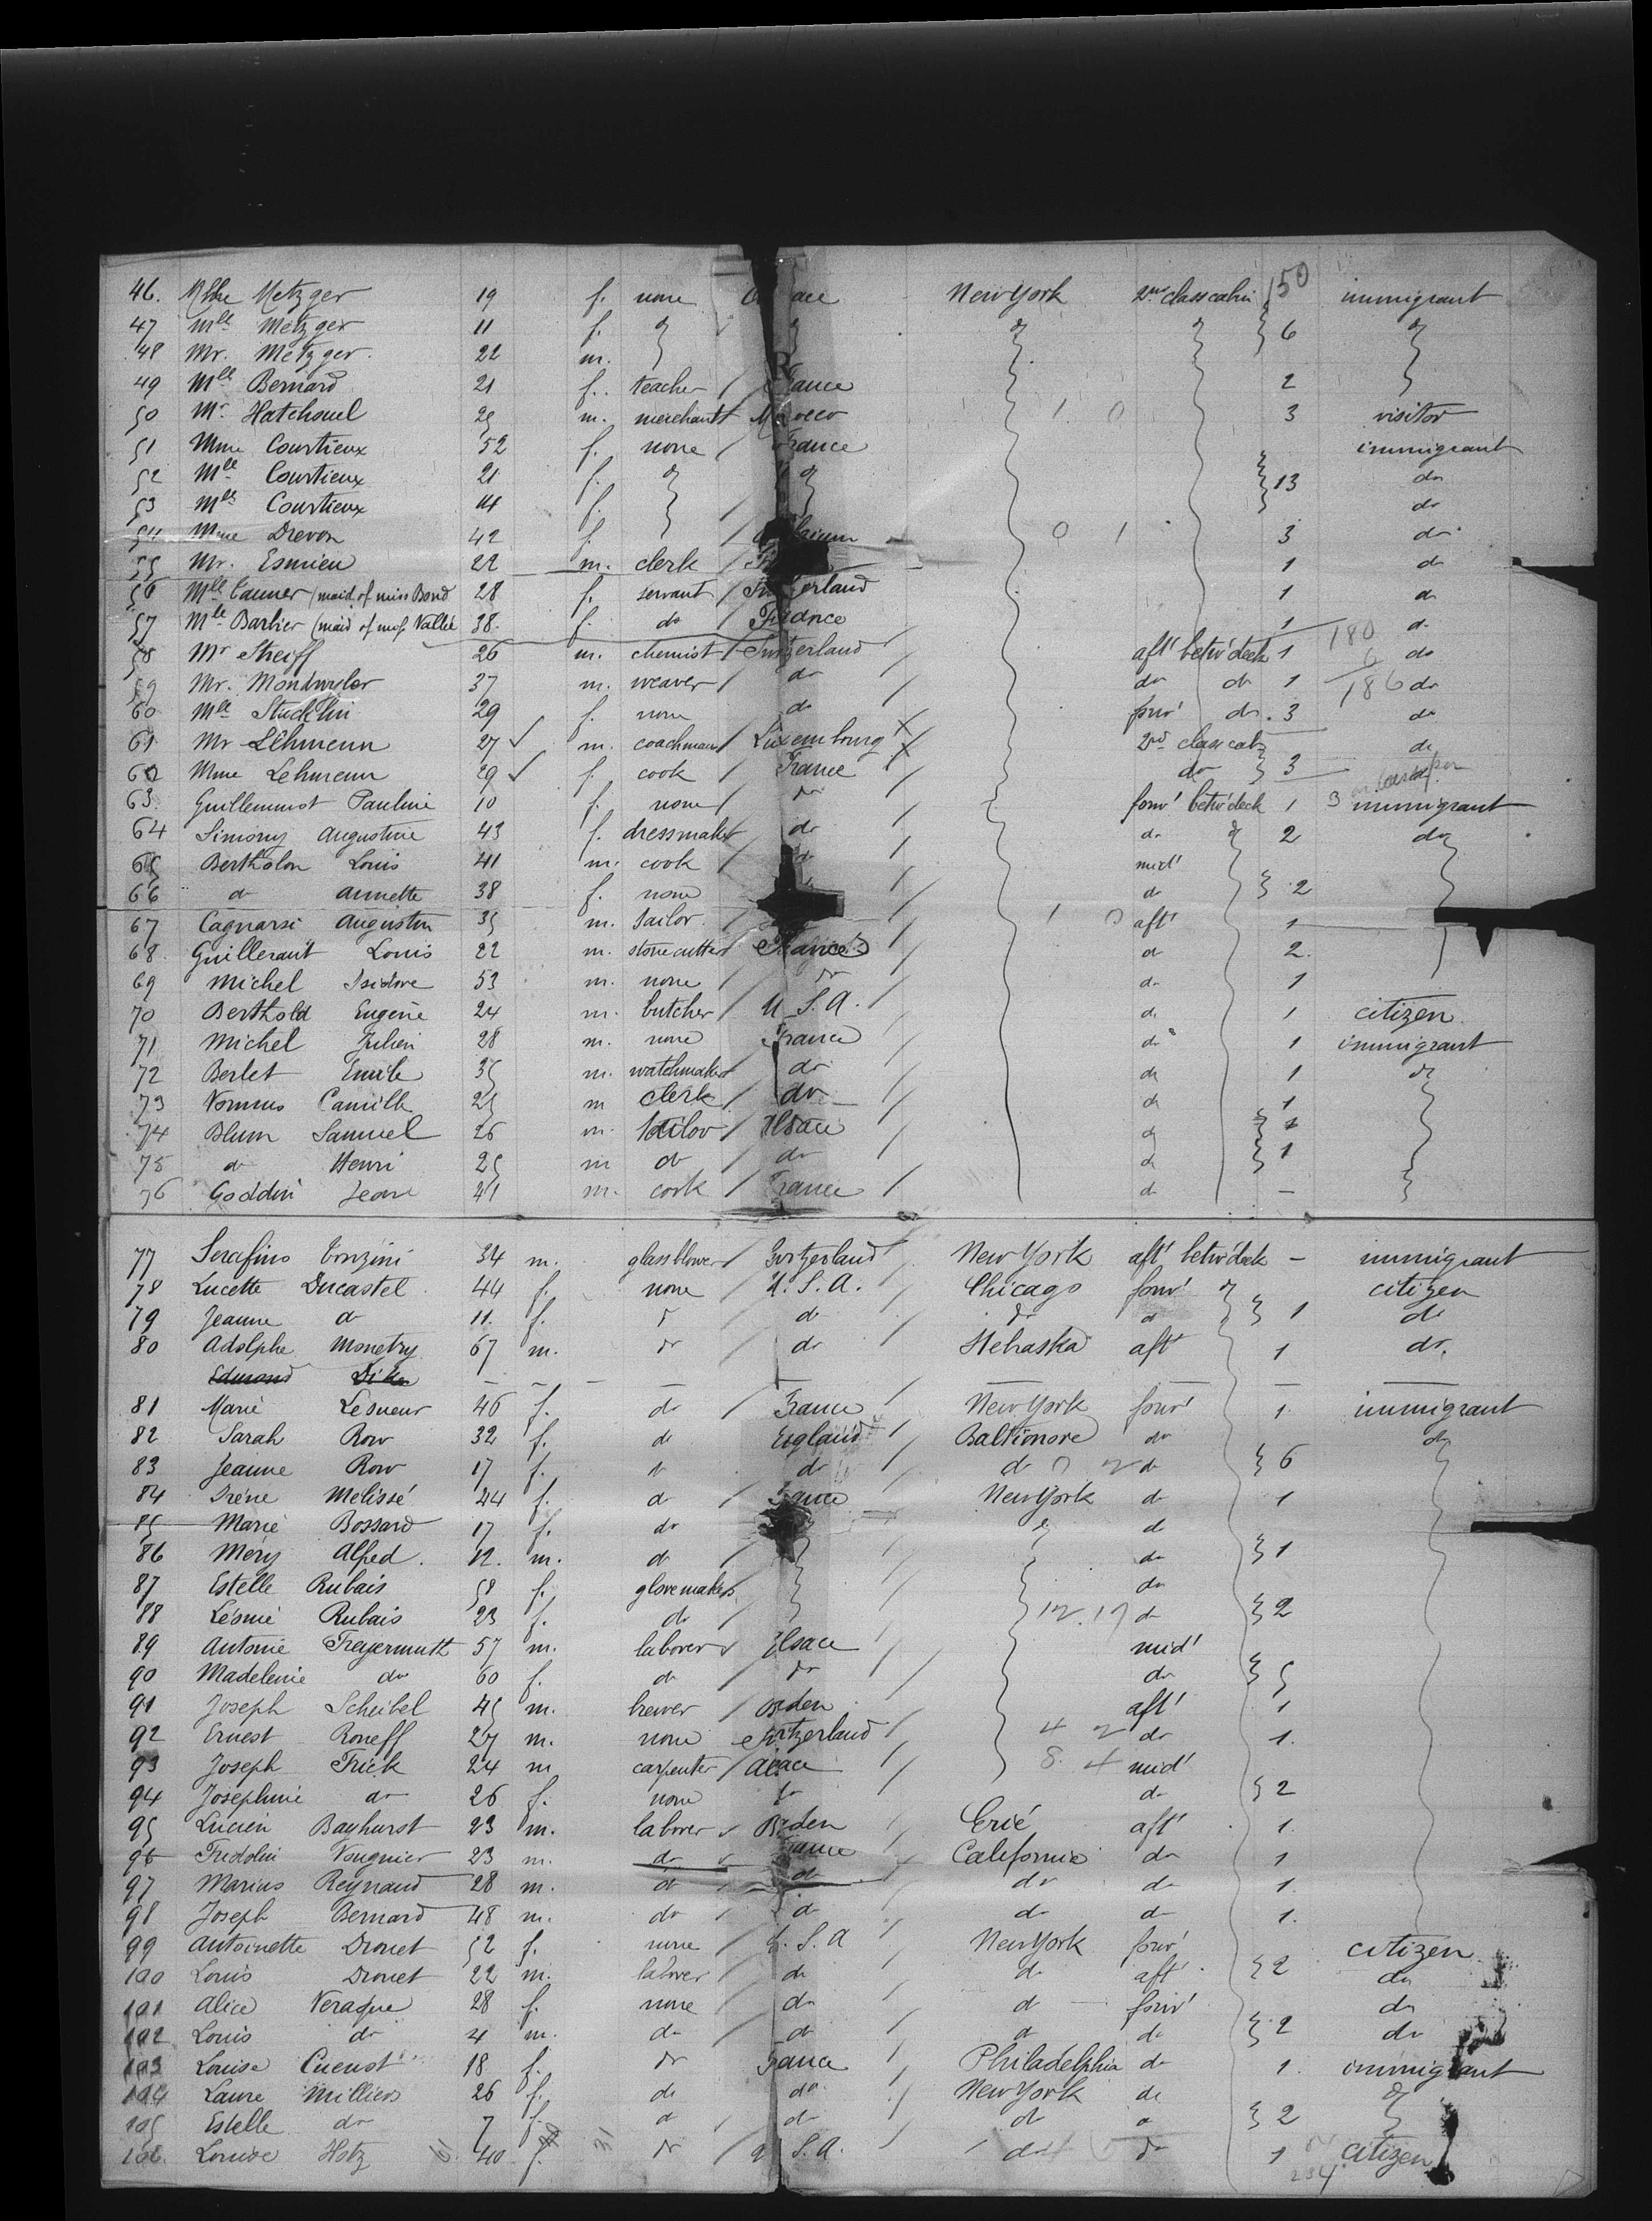 46. Mlle Metzger 19 f. none ace New York 2nd class cabin 150 immigrant
47 Mlle Metzger 11 f. d } d } d } d } } 6 d }
48 Mr. Metzger. 22 m.
49 Mlle Bernard 21 f. teacher / France 2
50 Mr Hatchouel 25 m. merchant Morocco 1 0 3 visitor
51 Mme Courtieux 52 f. none / France immigrant
52 Mlle Courtieux 21 f. d d } 13 do
53 Mlle Courtieux 14 f. do
54 Mme Drevon 42 f. 0 1 3 do
55 Mr. Esmieu 22 m. clerk / 1 do
56 Mlle (maid of miss Bond 28 f. servant / 1 do
57 Mlle Barbier (maid of Vallée 38. f. do / France 1 do
58 Mr Streiff 26 m. chemist / Switzerland / aft' betw' deck 1 180 do
59 Mr. 37 m. weaver / do / do do 1 186 do
60 Mlle 29 f. none do / forw' do. 3 do
61 Mr Lehmenn 27 ✓ m. coachman / Luxembourg X 2nd class cab do
62 Mme Lehmenn 29 ✓ f. cook / France do } 3
63. Pauline 10 f. none / do / forw' betw' deck 1 3 immigrant
64 Simony Augustine 43 f. dressmaker do / do d 2 do
65 Bertholon Louis 41 m. cook / do / mid'
66 do Annette 38 f. none do } 2
67 Cagnarsi Augustin 35 m. tailor 1 0 aft' 1
68. Guilleraut Louis 22 m. stonecutter France / do 2.
69 Michel Isidore 53 m. none / do / do 1
70 Berthold Eugène 24 m. butcher / U.S.A. / do 1 citizen
71 Michel Julien 28 m. none France / do 1 immigrant
72 Berlet Emile 35 m. watchmaker do / do 1 d
73 Camille 25 m clerk / do / do 1
74 Blum Samuel 26 m. tailor / Alsace / do } 1
75 do Henri 25 m do / do / do
76 Goddin Jean 41 m. cook / France / do –
77 Serafino 34 m. glassblower / Switzerland New York aft' betw' deck – immigrant
78 Lucette Ducastel 44 f. none / U.S.A. / Chicago forw' d citizen
79 Jeanne do 11. f. do / do / do do } 1 do
80 Adolphe Monetry 67 m. do / do / Nebraska aft' 1 do.
Edmond – – – – – – – –
81 Marie Lesueur 46 f. do / France / New York forw' 1. immigrant
82 Sarah Row 32 f. do England / Baltimore do do
83 Jeanne Row 17 f. do do / do 0 2 do } 6
84 Irène Melissé 44 f. do / France New York do 1
85 Marie Bossard 17 f. do / d do
86 Mery Alfred. 12. m. do / do } 1
87 Estelle Rubais 58 f. glovemakers / do
88 Léonie Rubais 23 f. do / 12.17 do } 2
89 Antonie Freyermuth 57 m. laborer Alsace / mid'
90 Madeleine do 60 f. do / do / do } 5
91 Joseph Scheibel 45 m. brewer / Baden / aft' 1
92 Ernest Roneff 27 m. none Switzerland / 4 2 do 1.
93 Joseph Frick 24 m carpenter / Alsace / 8. 4 mid'
94 Josephine do 26 f. none do / do } 2
95 Lucien Bayhurst 23 m. laborer Baden / Erié aft' 1.
96 Fridolin Vougnier 23 m. do France / California do 1
97 Marius Reynaud 28 m. do / do do do 1.
98 Joseph Bernard 48 m. do / do / do do 1.
99 Antoinette Drouet 52 f. none U.S.A / New York forw' citizen
100 Louis Drouet 22 m. laborer / do / do aft' } 2 do
101 Alice 28 f. none do / do forw' do
102 Louis do 4 m. do / do / do do } 2 do
103 Louise Cuenot 18 f. do France / Philadelphia do 1. immigrant
104 Laure Milliers 26 f. do do / New York do d
105 Estelle do 7 f. do / do do do } 2
106. Louise Hotz 40 f. 31 do / U.S.A. / do do 1 citizen
234